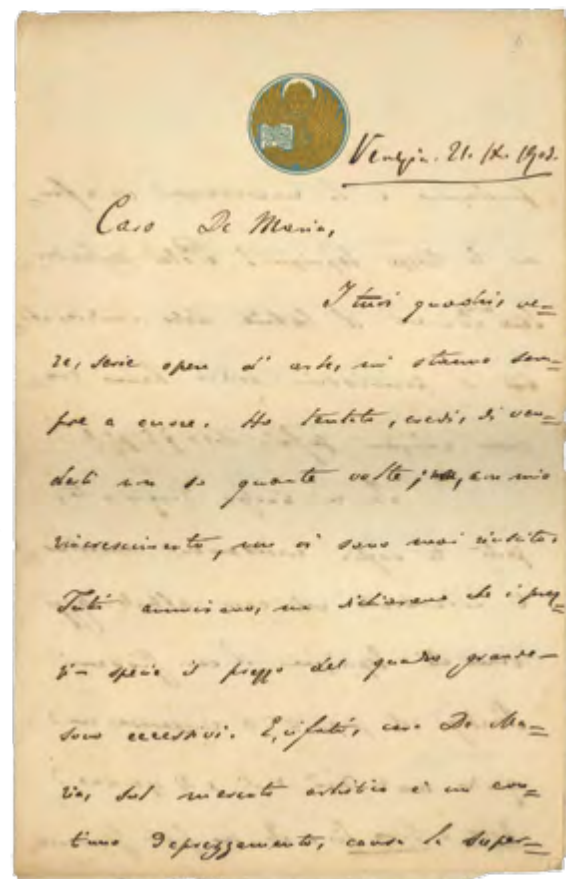 Venezia. 21. IX. 1903.
Caro De Maria,
I tuoi quadri, ve=
re, serie opere d'arte, mi stanno sem=
pre a cuore. Ho tentato, credi, di ven=
derli non so quante volte; ma, con mio
rincrescimento, non ci sono mai riuscito.
Tutti ammirano, ma dichiarano che i prez=
zi – specie il prezzo del quadro grande –
sono eccessivi. E, infatti, caro De Ma=
ria, sul mercato artistico c'è un con=
tinuo deprezzamento, causa la super=